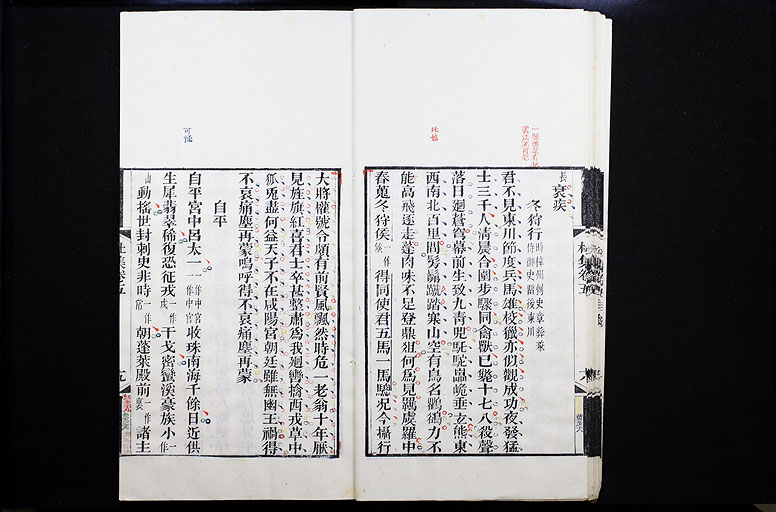 長衰疾
冬狩行時梓州刺史章彝兼侍御史留後東川
君不見東川節度兵馬雄校獵亦似觀成功夜發猛
士三千人清晨合圍步驟同禽獸已斃十七八殺聲
落日迴蒼穹幕前生致九青兕駝㟴峞垂玄熊東
西南北百里間髣髴蹴踏寒山空有鳥名鸜鵒力不
能高飛逐走蓬肉味不足登鼎俎何為見羈虞羅中
春蒐冬狩侯一作候得同使君五馬一馬驄況今攝行
大將權號令頗有前賢風飄然時危一老翁十年厭
見旌旗紅喜君士卒甚整肅為我迴轡擒西戎草中
狐兔盡何益天子不在咸陽宮朝廷雖無幽王禍得
不哀痛塵再蒙嗚呼得不哀痛塵再蒙
自平
自平宮中呂太一一作中官一作中宮收珠南海千餘日近供
生犀翡翠稀復恐征戎一作戍干戈密蠻溪豪族小一作
山動搖世封刺史非時一作常朝蓬萊殿前一作裏諸主
杜集卷五
可怪
比也